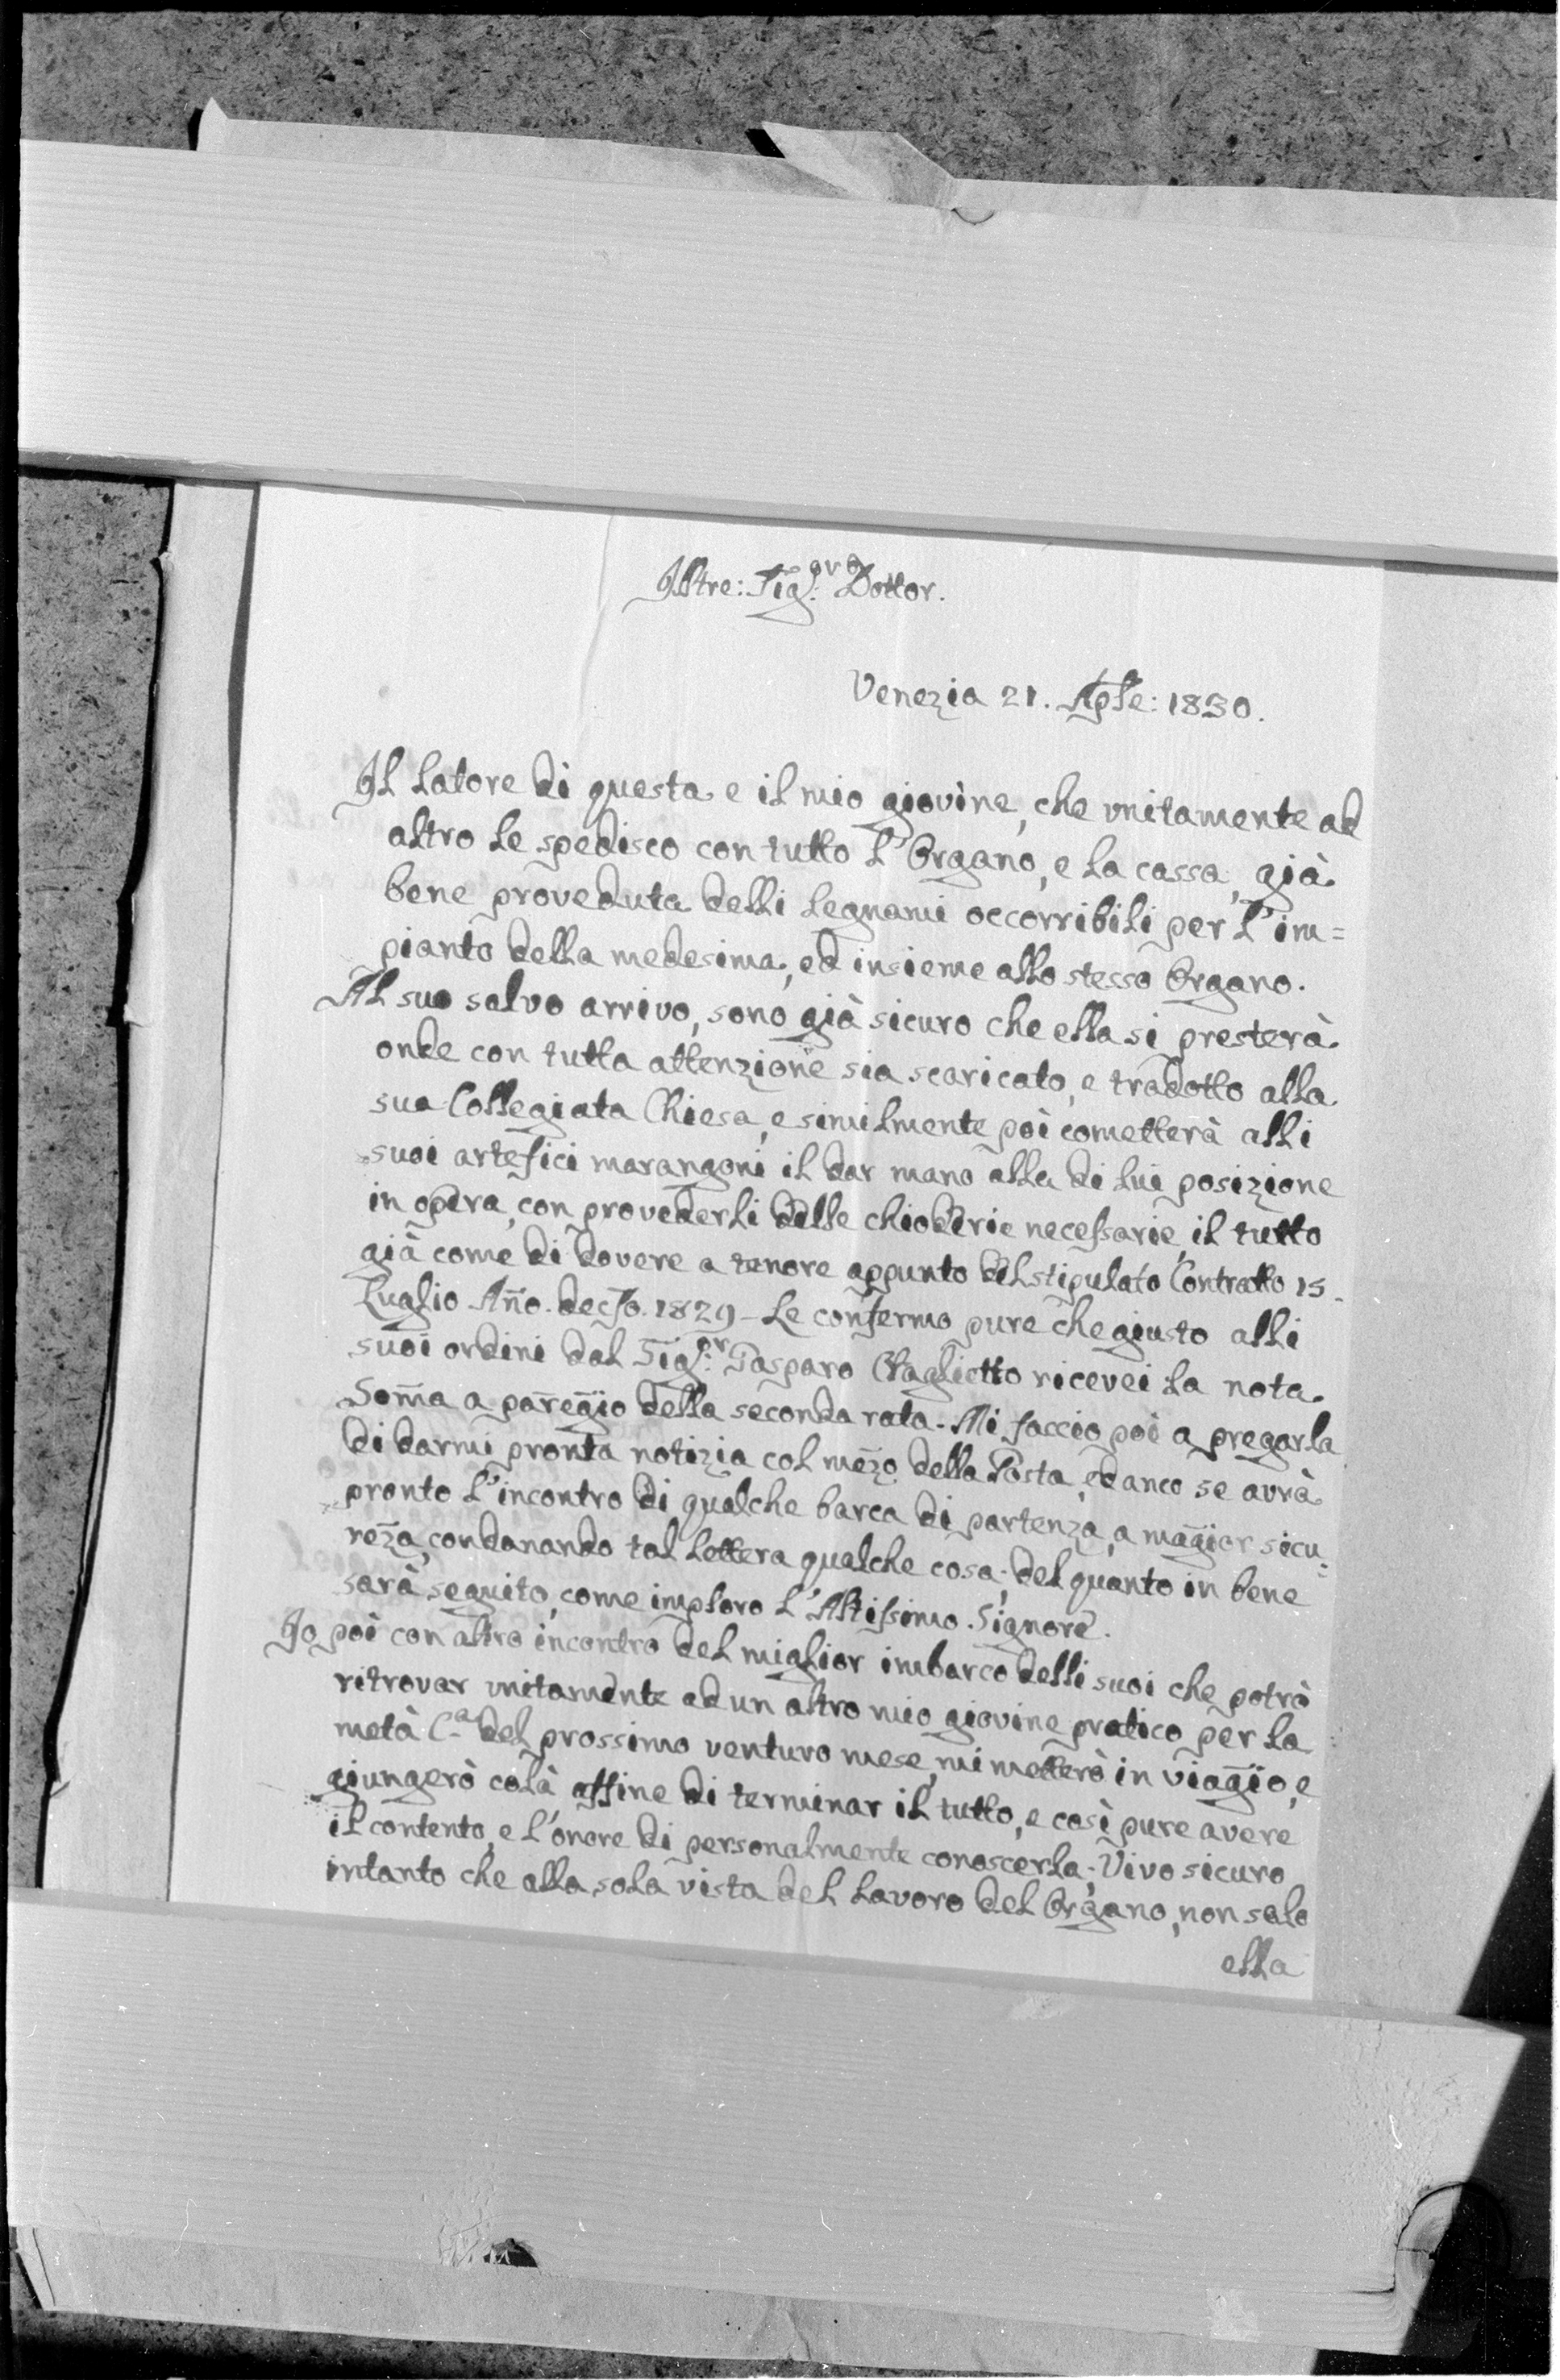 Illtre: Sig:ore Dottor.
Venezia 21. Aple: 1830.
Il Latore di questa e il mio giovine, che unitamente ad
altro le spedisco con tutto l'Organo, e la cassa, già
bene proveduta delli Legnami occorribili per l'im=
pianto della medesima, ed insieme allo stesso Organo.
Al suo salvo arrivo, sono già sicuro che ella si presterà
onde con tutta attenzione sia scaricato, e tradotto alla
sua Collegiata Chiesa, e similmente poi cometterà alli
suoi artefici marangoni il dar mano alla di lui posizione
in opera, con provederli delle chioderie necessarie, il tutto
già come di dovere a tenore appunto del stipulato Contratto 15.
Luglio Año. decso. 1829 - Le confermo pure che giusto alli
suoi ordini dal Sig:or Gasparo Craglietto ricevei la nota
Som̃a a pareg̃io della seconda rata. Mi faccio poi a pregarla
di darmi pronta notizia col mez̃o della Posta, ed anco se avrà
pronto l'incontro di qualche barca di partenza, a mag̃ior sicu=
rez̃a, condanando tal Lettera qualche cosa; del quanto in bene
sarà seguito, come imploro l'Altissimo Signore.
Io poi con altro incontro del miglior imbarco delli suoi che potrò
ritrovar unitamente ad un altro mio giovine pratico per la
metà C.a del prossimo venturo mese, mi metterò in viag̃io, e
giungerò colà affine di terminar il tutto, e così pure avere
il contento, e l'onore di personalmente conoscerla; Vivo sicuro
intanto che alla sola vista del Lavoro del Organo, non solo
ella